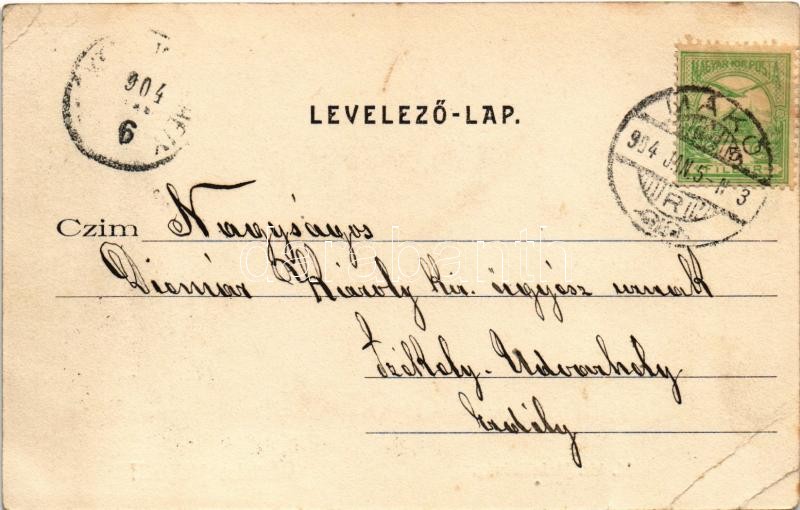 904
6
HELY
LEVELEZŐ-LAP.
MAGYAR KIR. POSTA
MAKÓ
904 JAN. 5
Czim Nagyságos
Dicmár Károly kir. ügyész urnak
Székely-Udvarhely
Erdély
darabanth